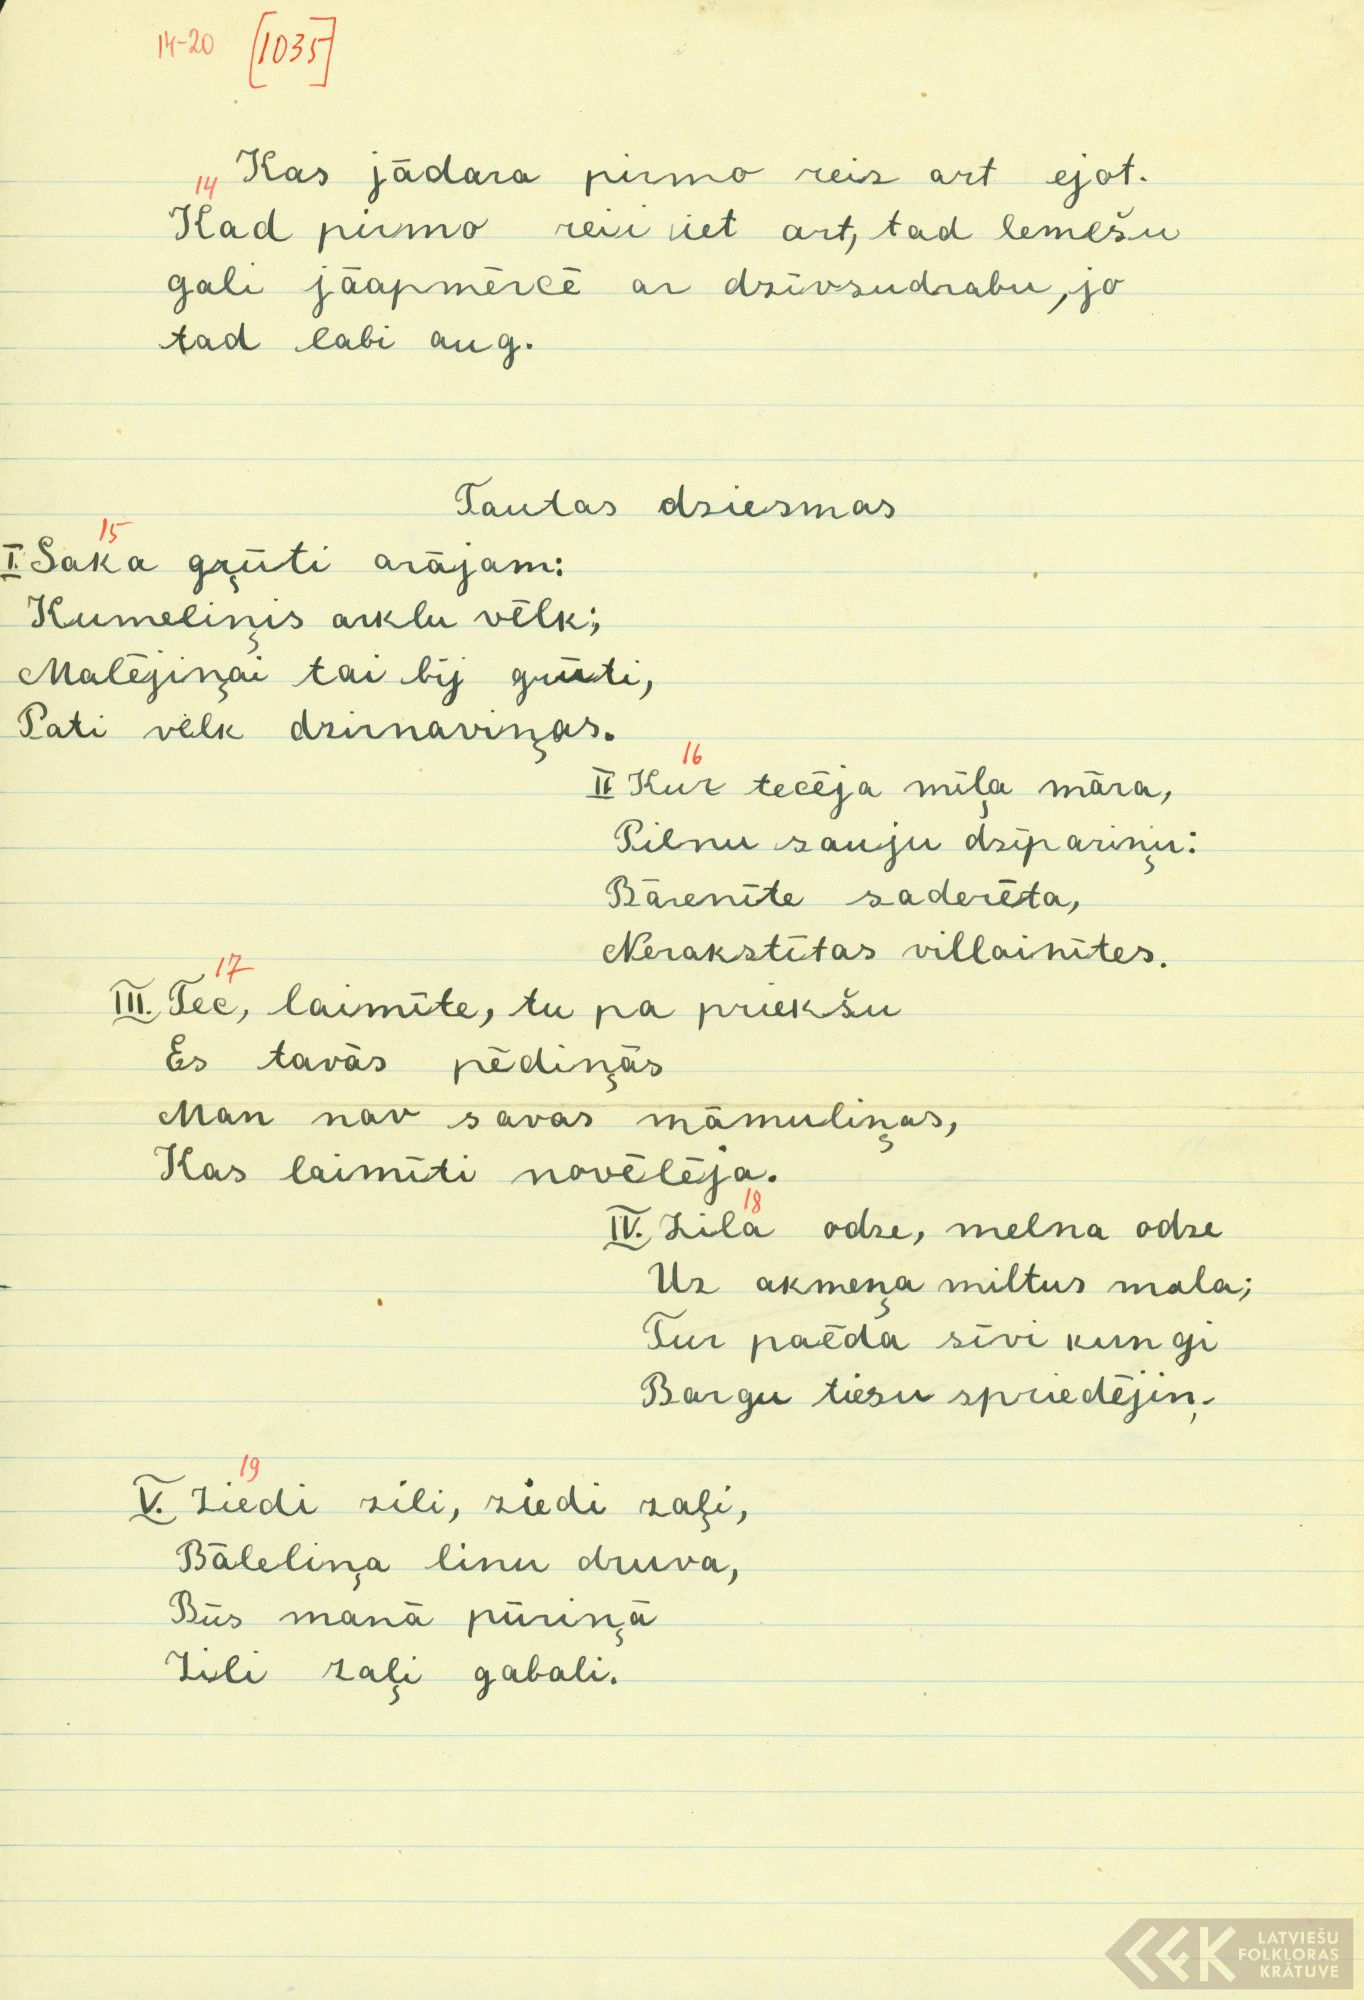 14-20 [1035]
Kas jādara pirmo reiz art ejot.
14
Kad pirmo reizi iet art, tad lemešu
gali jāapmērcē ar dzīvsudrabu, jo
tad labi aug.
Tautas dziesmas
15
I. Saka gŗūti arājam:
Kumeliņis arklu vēlk;
Malējiņai tai bij grūti,
Pati vēlk dzirnaviņas.
16
II Kur tecēja mīļa māra,
Pilnu sauju dzīpariņu:
Bārenīte saderēta,
Nerakstītas villainītes.
17
III. Tec, laimīte, tu pa priekšu
Es tavās pēdiņās
Man nav savas māmuliņas,
Kas laimīti novēlēja.
18
IV. Zila odze, melna odze
Uz akmeņa miltus mala;
Tur paēda sīvi kungi
Bargu tiesu spriedējiņ.
19
V. Ziedi zili, ziedi zaļi,
Bāleliņa linu druva,
Būs manā pūriņā
Zili zaļi gabali.
LATVIEŠU
FOLKLORAS
KRĀTUVE